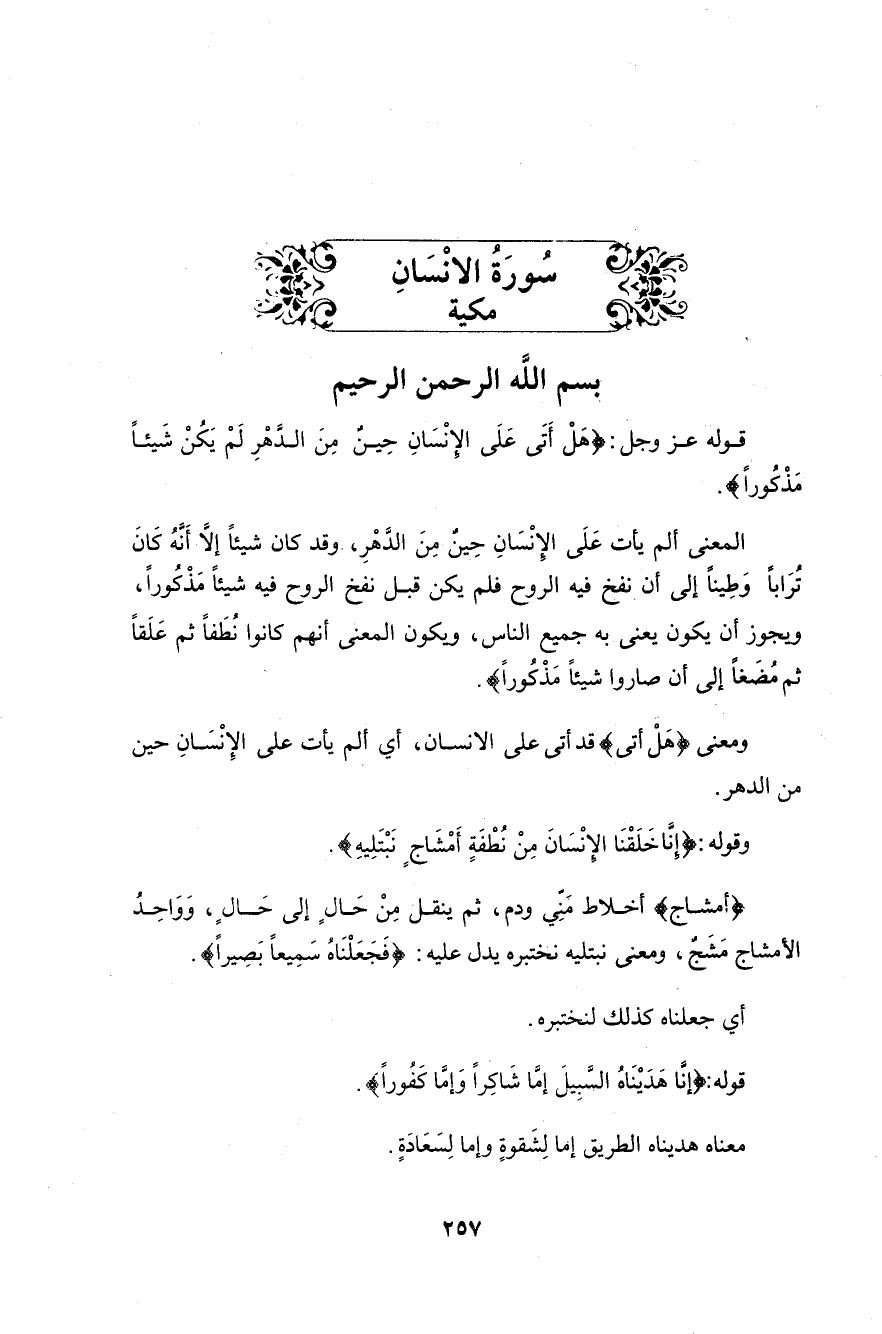 سُورَةُ الانْسَانِ
مكية
بسم اللَّه الرحمن الرحيم
قـوله عـز وجل: ﴿هَلْ أَتَى عَلَى الإِنْسَانِ حِيـنٌ مِنَ الـدَّهْرِ لَمْ يَكُنْ شَيئـاً
مَذْكُوراً﴾.
المعنى ألم يأت عَلَى الإِنْسَانِ حِينٌ مِنَ الدَّهْرِ، وقد كان شيئاً إلَّا أَنَّهُ كَانَ
تُرَاباً وَطِيناً إلى أن نفخ فيه الروح فلم يكن قبـل نفخ الروح فيه شيئاً مَذْكُوراً،
ويجوز أن يكون يعنى به جميع الناس، ويكون المعنى أنهم كانوا نُطَفاً ثم عَلَقاً
ثم مُضَغاً إلى أن صاروا شيئاً مَذْكُوراً﴾.
ومعنى ﴿هَلْ أتى﴾ قد أتى على الانسـان، أي ألم يأت على الإِنْسَـانِ حين
من الدهر.
وقوله: ﴿إِنَّا خَلَقْنَا الإِنْسَانَ مِنْ نُطْفَةٍ أَمْشَاجٍ نَبْتَلِيهِ﴾.
﴿أمشـاج﴾ أخـلاط مَنِّي ودم، ثم ينقـل مِنْ حَـالٍ إلى حَـالٍ، وَوَاحِـدُ
الأمشاج مَشَجٌ، ومعنى نبتليه نختبره يدل عليه: ﴿فَجَعَلْنَاهُ سَمِيعاً بَصِيراً﴾.
أي جعلناه كذلك لنختبره.
قوله: ﴿إِنَّا هَدَيْنَاهُ السَّبِيلَ إمَّا شَاكِراً وَإمَّا كَفُوراً﴾.
معناه هديناه الطريق إما لِشَقوةٍ وإما لِسَعَادَةٍ.
٢٥٧